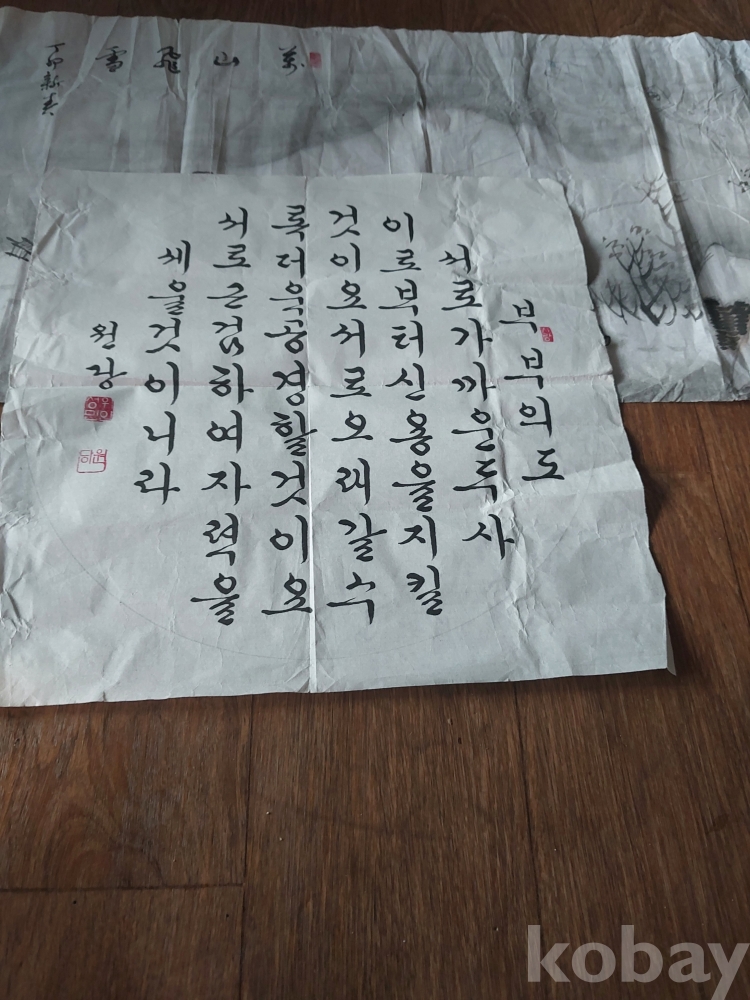 萬山飛雪
丁卯新春
부부의도
서로가까운두사
이로부터신용을지킬
것이요서로오래갈수
록더욱공경할것이요
서로근검하여자력을
세울것이니라
원강
kobay